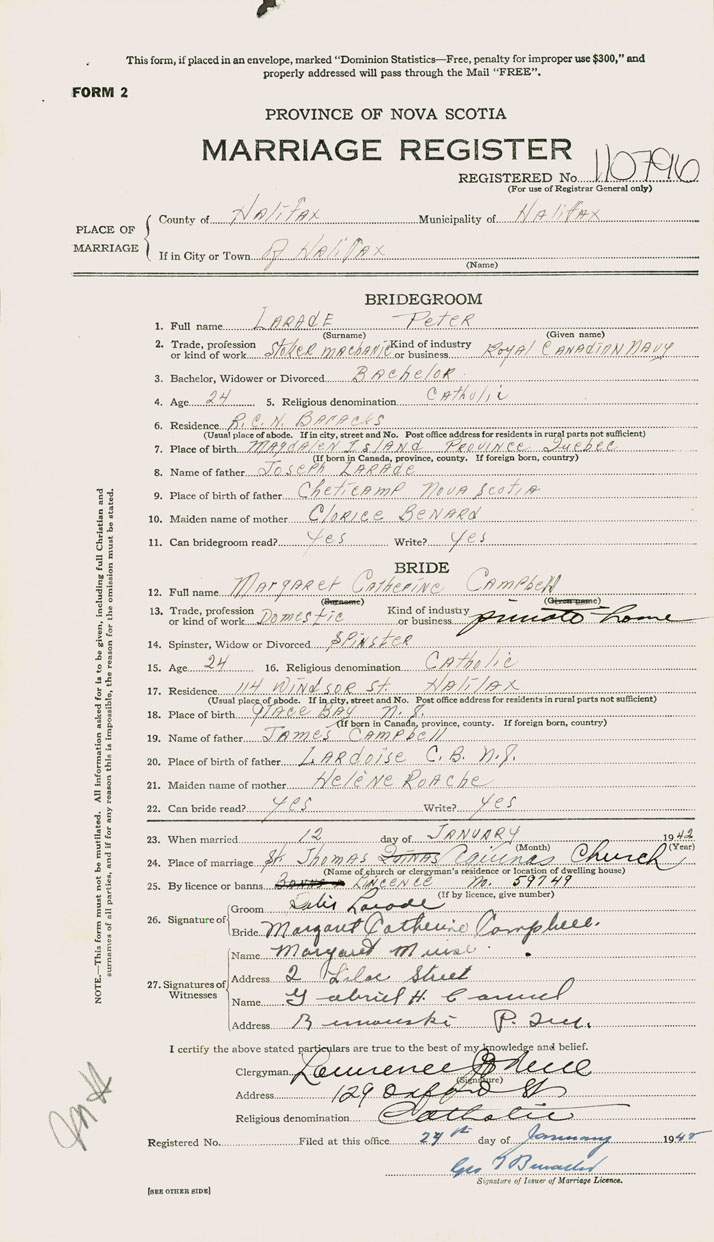 This form, if placed in an envelope, marked "Dominion Statistics—Free, penalty for improper use $300," and
properly addressed will pass through the Mail "FREE".
FORM 2
PROVINCE OF NOVA SCOTIA
MARRIAGE REGISTER
REGISTERED No. 110796
(For use of Registrar General only)
PLACE OF MARRIAGE
County of Halifax Municipality of Halifax
If in City or Town of Halifax
(Name)
BRIDEGROOM
1. Full name LARADE Peter
(Surname) (Given name)
2. Trade, profession or kind of work Stoker machanic Kind of industry or business Royal Canadion Navy
3. Bachelor, Widower or Divorced Bachelor
4. Age 24 5. Religious denomination Catholic
6. Residence R.C.N. Baracks
(Usual place of abode. If in city, street and No. Post office address for residents in rural parts not sufficient)
7. Place of birth Magdalen Island Province Quebec
(If born in Canada, province, county. If foreign born, country)
8. Name of father Joseph Larade
9. Place of birth of father Cheticamp Nova Scotia
10. Maiden name of mother Clorice Benard
11. Can bridegroom read? yes Write? yes
BRIDE
12. Full name Margaret Catherine Campbell
(Surname) (Given name)
13. Trade, profession or kind of work Domestic Kind of industry or business private home
14. Spinster, Widow or Divorced Spinster
15. Age 24 16. Religious denomination Catholic
17. Residence 114 Windsor St. Halifax
(Usual place of abode. If in city, street and No. Post office address for residents in rural parts not sufficient)
18. Place of birth Glace Bay N.S.
(If born in Canada, province, county. If foreign born, country)
19. Name of father James Campbell
20. Place of birth of father Lardoise C.B. N.S.
21. Maiden name of mother Helene Roache
22. Can bride read? yes Write? yes
23. When married 12 day of January 1942
(Month) (Year)
24. Place of marriage St. Thomas Aquinas Church
(Name of church or clergyman's residence or location of dwelling house)
25. By licence or banns Lincence No. 59749
(If by licence, give number)
26. Signature of Groom Larade
Bride Margaret Catherine Campbell.
27. Signatures of Witnesses
Name Margaret Muise
Address 2 Lilac Street
Name Gabriel H.
Address P.
I certify the above stated particulars are true to the best of my knowledge and belief.
Clergyman Lawrence
(Signature)
Address 129 Oxford St
Religious denomination Catholic
Registered No. Filed at this office 24th day of January 194
Geo
Signature of Issuer of Marriage Licence.
[SEE OTHER SIDE]
NOTE.—This form must not be mutilated. All information asked for is to be given, including full Christian and
surnames of all parties, and if for any reason this is impossible, the reason for the omission must be stated.